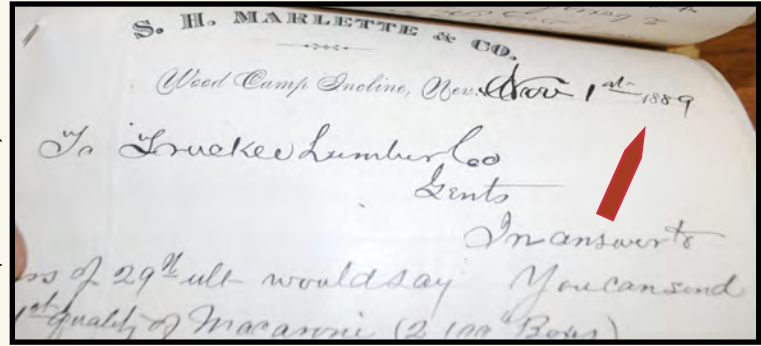 S. H. MARLETTE & CO.
Wood Camp Incline, Nev. Nov 1st 1889
To Truckee Lumber Co
Gents
In answer to
of 29th ult would say You can send
1st quality of Macaroni (2 100# Boxes)